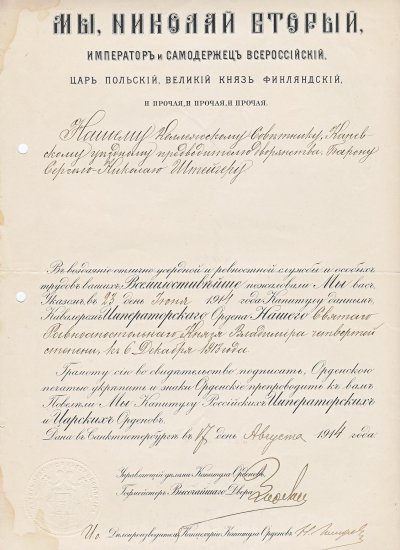 МЫ, НИКОЛАЙ ВТОРЫЙ,
ИМПЕРАТОРЪ и САМОДЕРЖЕЦЪ ВСЕРОССІЙСКІЙ,
ЦАРЬ ПОЛЬСКІЙ, ВЕЛИКІЙ КНЯЗЬ ФИНЛЯНДСКІЙ,
И ПРОЧАЯ, И ПРОЧАЯ, И ПРОЧАЯ.
Нашему Коллежскому Совѣтнику, Каневскому
уѣздному предводителю дворянства, Барону
Сергѣю-Николаю Штейгеру
Въ воздаяніе отлично усердной и ревностной службы и особыхъ
трудовъ вашихъ Всемилостивѣйше пожаловали Мы васъ,
Указомъ, въ 23 день Іюня 1914 года Капитулу даннымъ,
Кавалеромъ Императорскаго Ордена Нашего Святаго
Равноапостольнаго Князя Владиміра четвертой
степени, къ 6 Декабря 1913 года.
Грамоту сію во свидѣтельство подписать, Орденскою
печатью укрѣпить и знаки Орденскіе препроводить къ вамъ
Повелѣли Мы Капитулу Россійскихъ Императорскихъ
и Царскихъ Орденовъ.
Дана въ Санктпетербургѣ въ 17 день Августа 1914 года.
Управляющій дѣлами Капитула Орденовъ,
Гофмейстеръ Высочайшаго Двора
И о Дѣлопроизводителя Канцеляріи Капитула Орденовъ